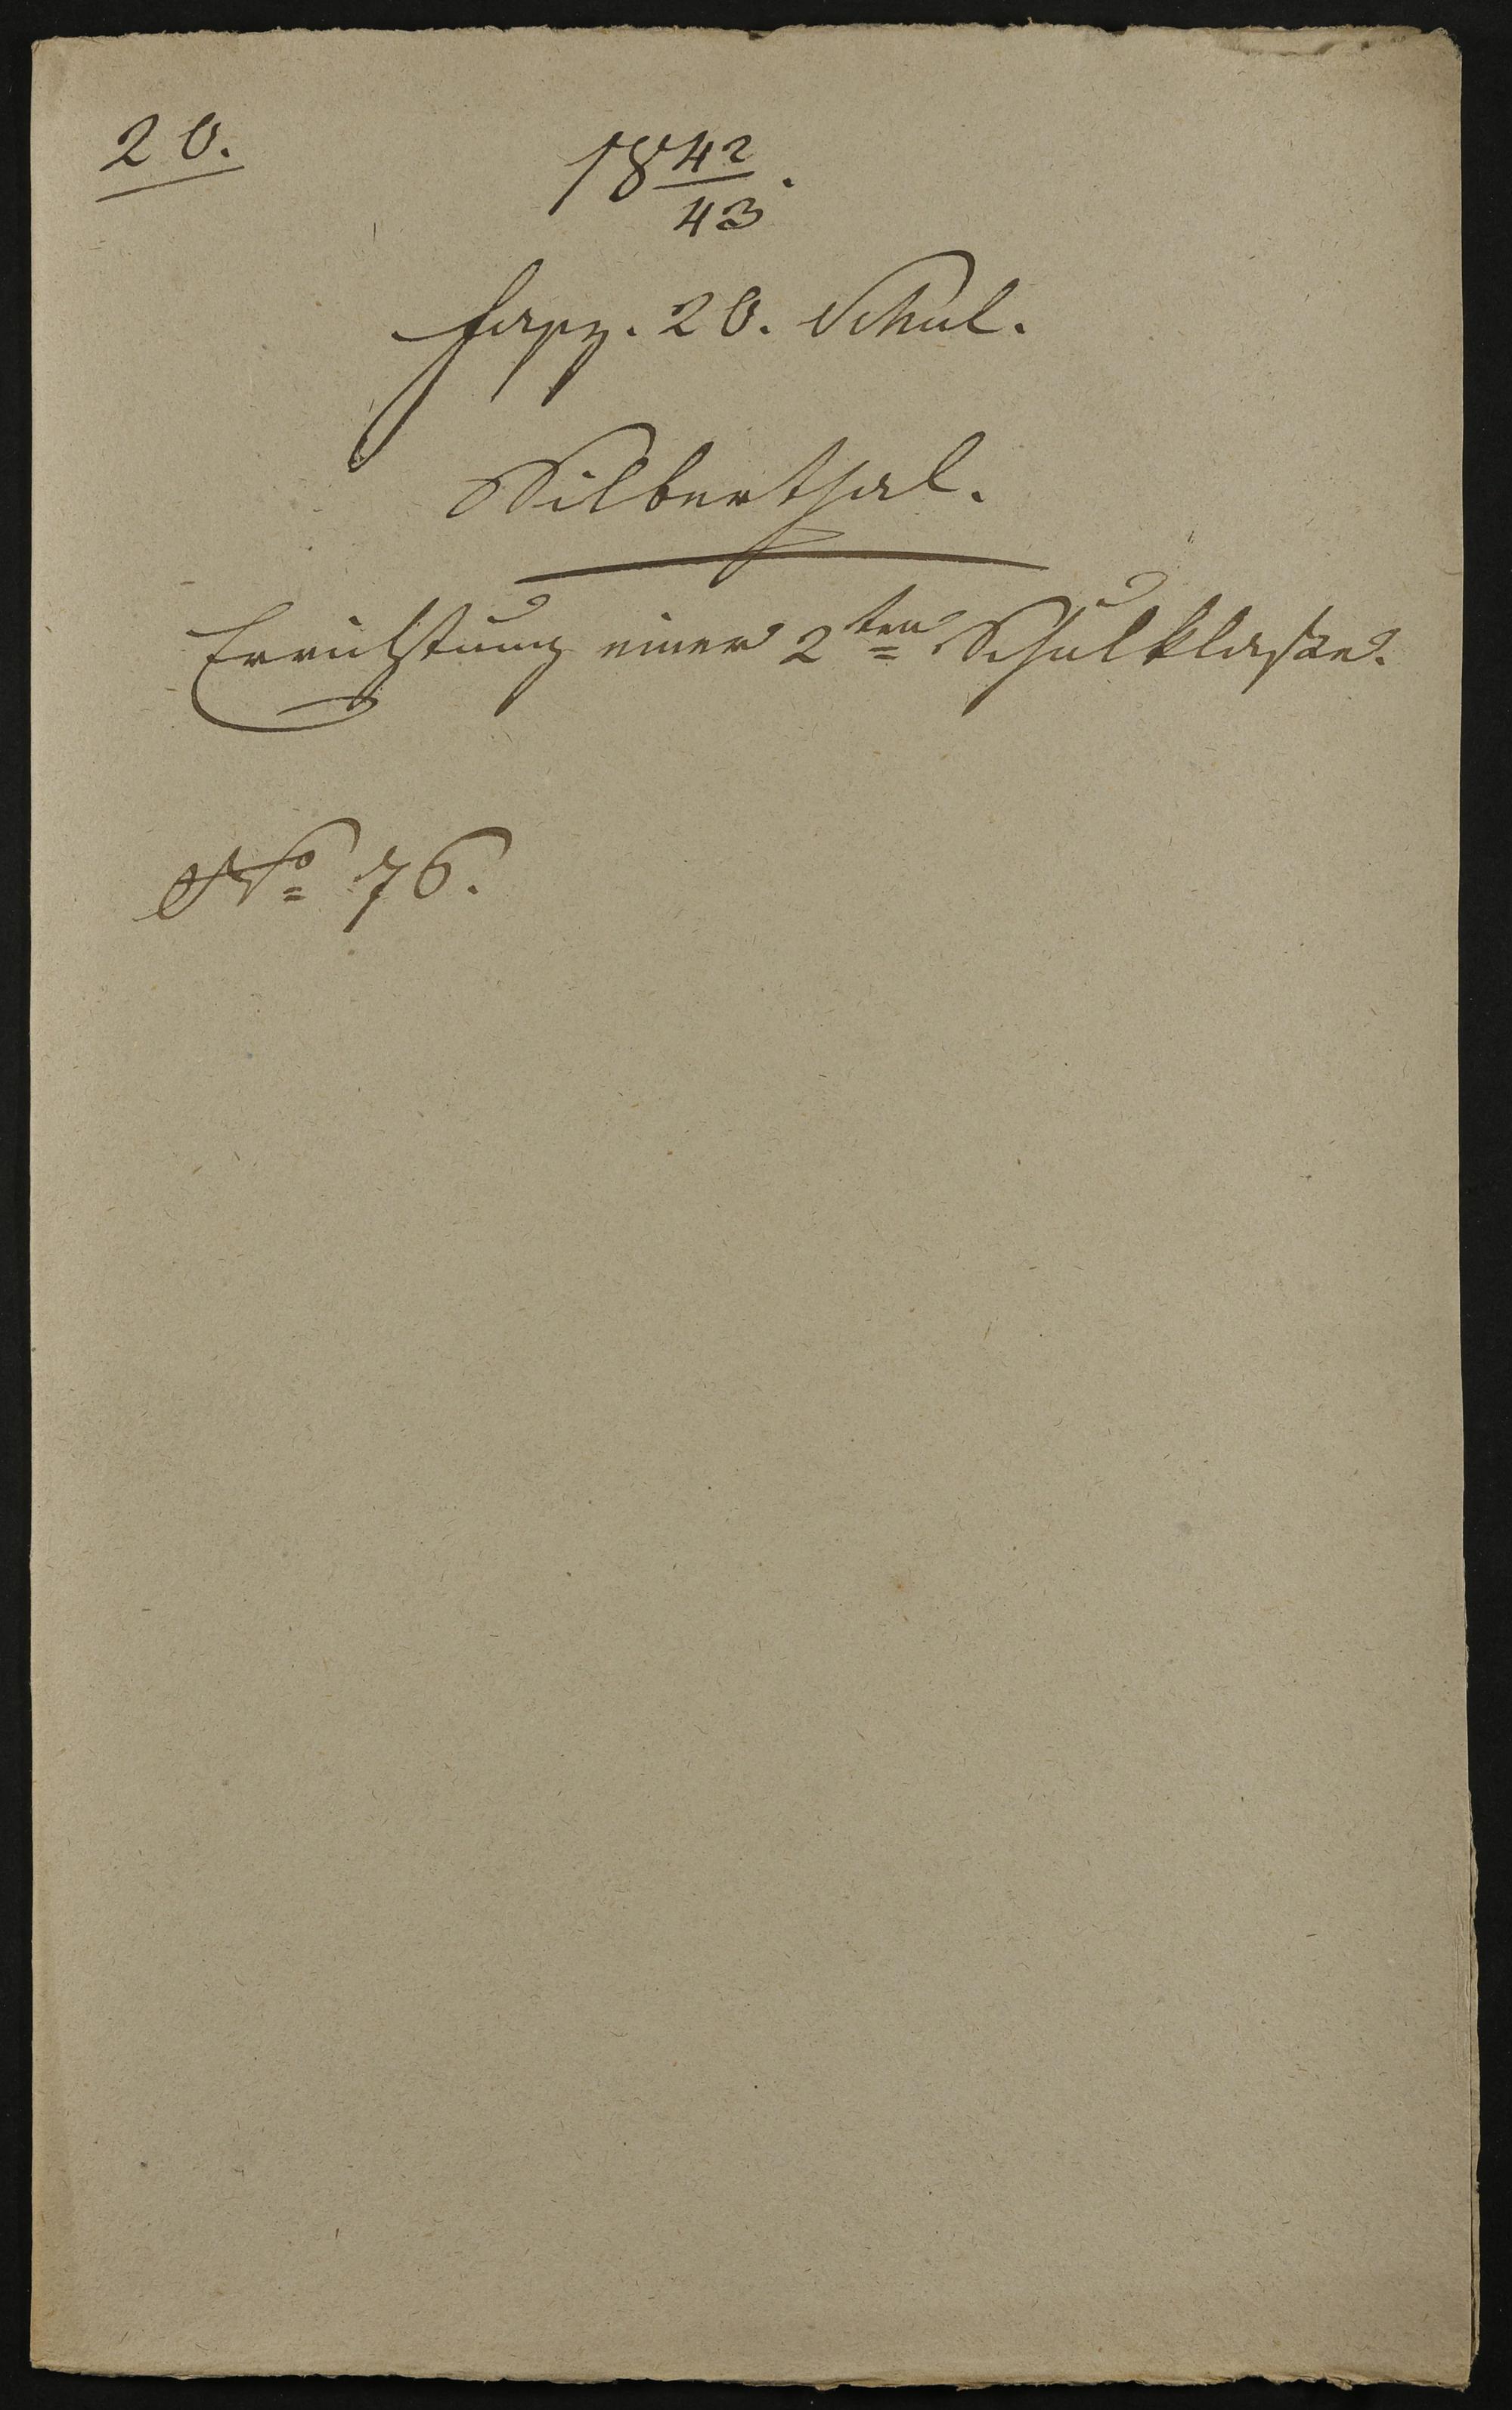 20.
18 42/43.
Fasz. 20. Schul.
Silberthal.
Errichtung einer 2ten Schulklasse.
No 76.